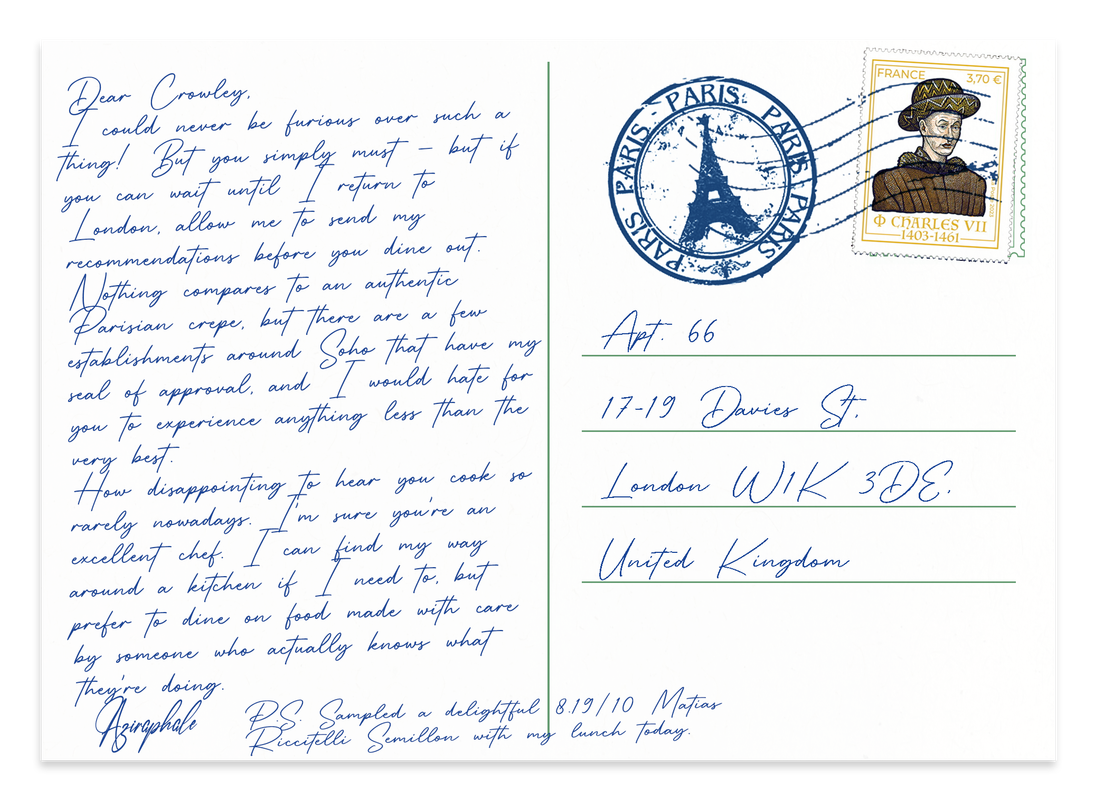 Dear Crowley,
I could never be furious over such a
thing! But you simply must – but if
you can wait until I return to
London, allow me to send my
recommendations before you dine out.
Nothing compares to an authentic
Parisian crepe, but there are a few
establishments around Soho that have my
seal of approval, and I would hate for
you to experience anything less than the
very best.
How disappointing to hear you cook so
rarely nowadays. I'm sure you're an
excellent chef. I can find my way
around a kitchen if I need to, but
prefer to dine on food made with care
by someone who actually knows what
they're doing.
Aziraphale
P.S. Sampled a delightful 8.19/10 Matias
Riccitelli Semillon with my lunch today.
PARIS - PARIS - PARIS - PARIS - PARIS
FRANCE 3,70 €
Φ CHARLES VII
1403-1461
Apt. 66
17-19 Davies St.
London W1K 3DE.
United Kingdom